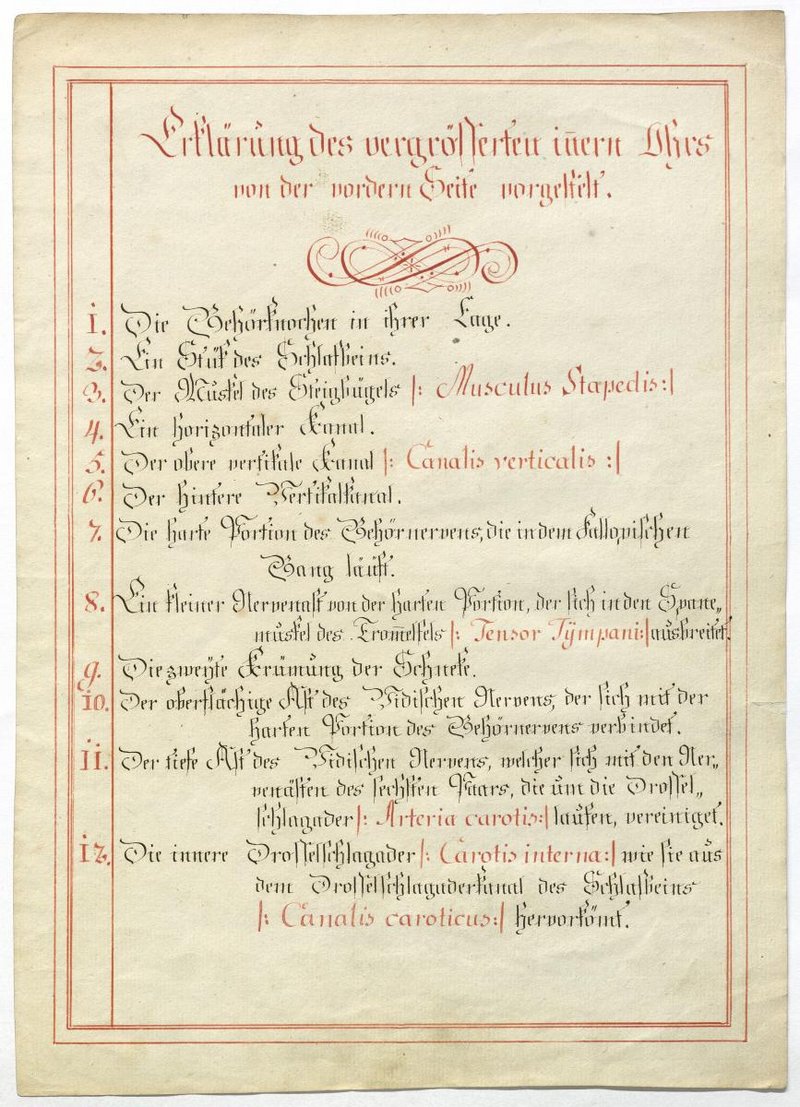 Erklärung des vergrösserten iñern Ohrs
von der vordern Seite vorgestelt.
1. Die Gehörknochen in ihrer Lage.
2. Ein Stük des Schlafbeins.
3. Der Muskel des Steigbügels |: Musculus Stapedis :|
4. Ein horizontaler Kanal.
5. Der obere vertikale Kanal |: Canalis verticalis :|
6. Der hintere Vertikalkanal.
7. Die harte Portion des Gehörnervens, die in dem Fallopischen
Gang läuft.
8. Ein kleiner Nervenast von der harten Portion, der sich in den Spane„
muskel des Trom̃elfels |: Tensor Tÿmpani :| ausbreitet.
9. Die zweÿte Krümung der Schneke.
10. Der oberflächige Ast des Vidischen Nervens, der sich mit der
harten Portion des Gehörnervens verbindet.
11. Der tiefe Ast des Vidischen Nervens, welcher sich mit den Ner„
venästen des sechsten Paars, die üm die Drossel„
schlagader |: Arteria carotis :| laufen, vereiniget.
12. Die innere Drosselschlagader |: Carotis interna :| wie sie aus
dem Drosselschlagaderkanal des Schlafbeins
|: Canalis caroticus :| hervorköm̃t.